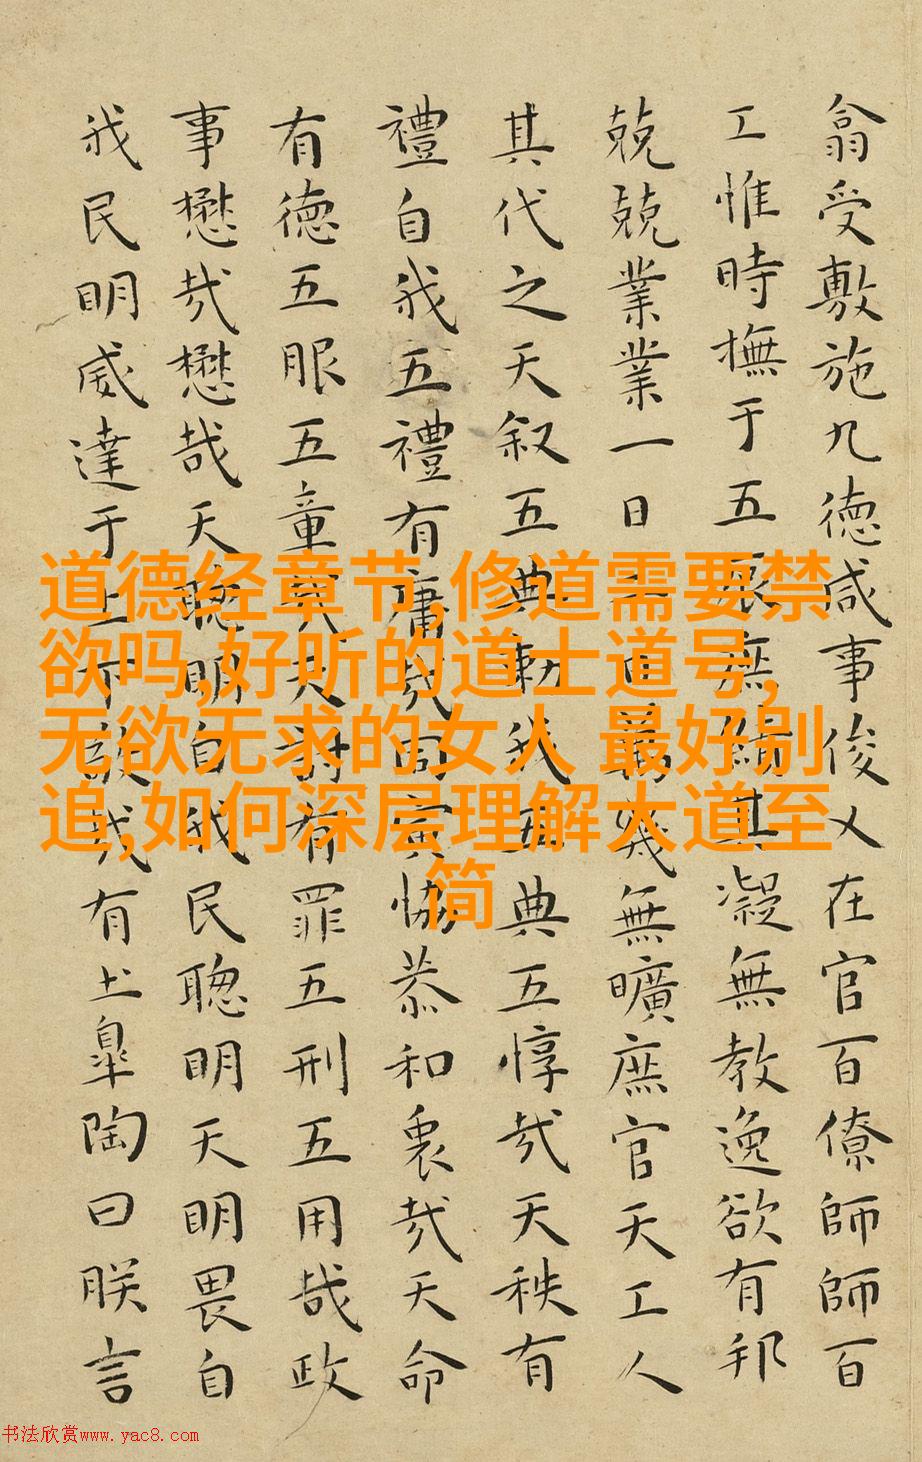 翕受敷施九德咸事俊乂在官百僚師師百
工惟時撫于五辰庶績其凝無教逸欲有邦
兢兢業業一日二日萬幾無曠庶官天工人
其代之天叙五典勑我五典五惇哉天秩有
禮自我五禮有庸哉同寅協恭和衷哉天命
有德五服五章哉天討有罪五刑五用哉政
事懋哉懋哉天聰明自我民聰明天明畏自
我民明威達于上下敬哉有土皋陶曰朕言
道德经章节,修道需要禁
欲吗,好听的道士道号,
无欲无求的女人 最好别
追,如何深层理解大道至
简
书法欣赏www.yac8.com